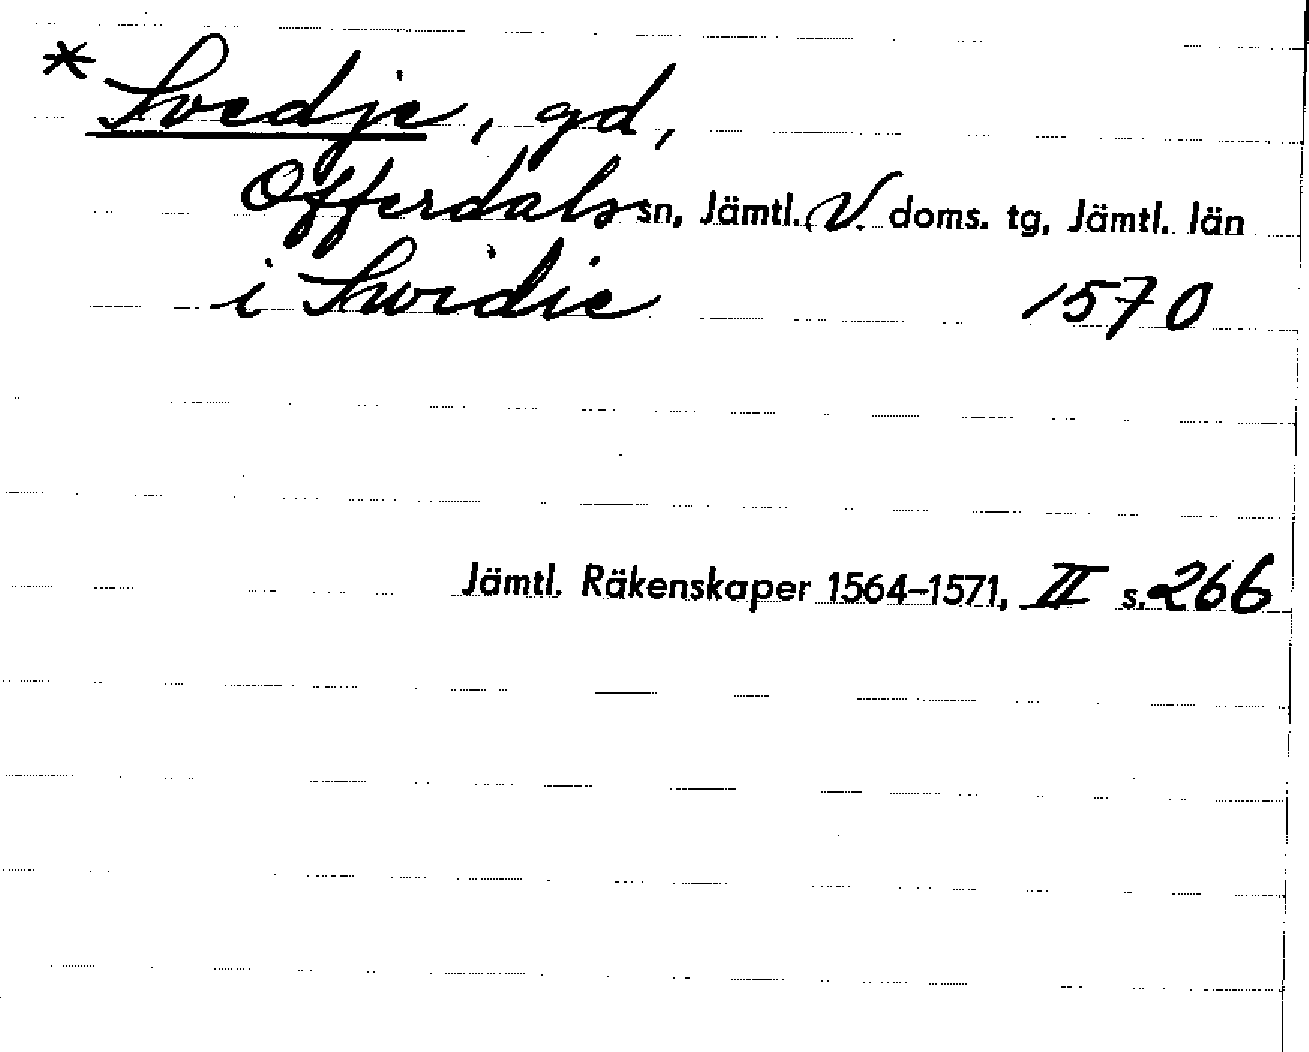 * Svedje, gd,
Offerdals sn, Jämtl. V. doms. tg, Jämtl. län
i Swidie 1570
Jämtl. Räkenskaper 1564–1571, II s. 266